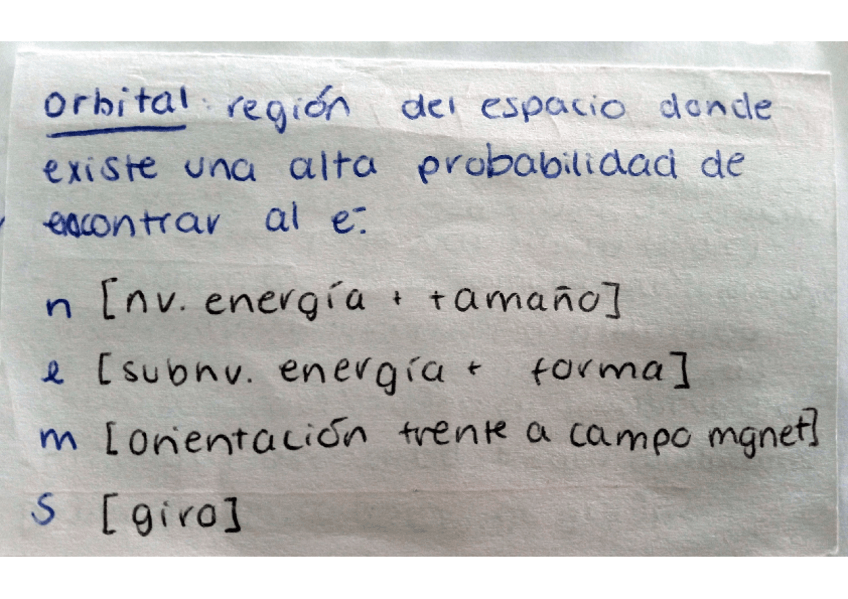 orbital: región del espacio donde
existe una alta probabilidad de
encontrar al e⁻.
n [nv. energía + tamaño]
l [subnv. energía + forma]
m [orientación frente a campo mgnet]
S [giro]